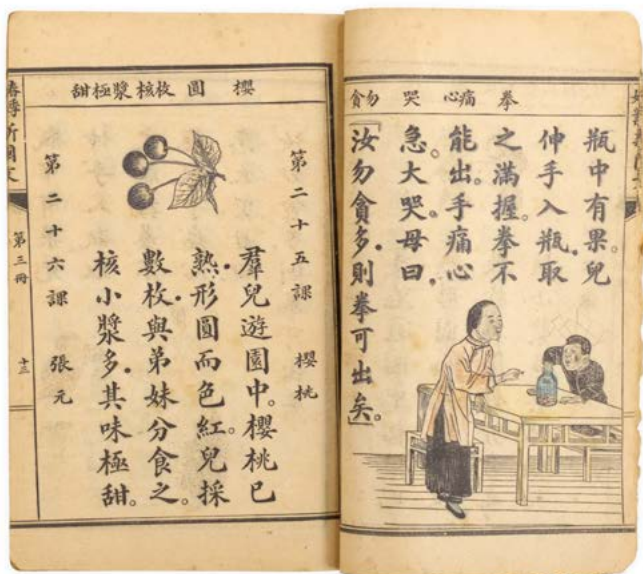 拳 痛心 哭 勿貪
瓶中有果。兒
伸手入瓶。取
之滿握。拳不
能出。手痛心
急。大哭。母曰。
「汝勿貪多。則拳可出矣。」
櫻 圓 枚核漿極甜
第二十五課 櫻桃
羣兒遊園中。櫻桃已
熟。形圓而色紅。兒採
數枚。與弟妹分食之。
核小漿多。其味極甜。
第二十六課 張元
新國文 第三冊 十三